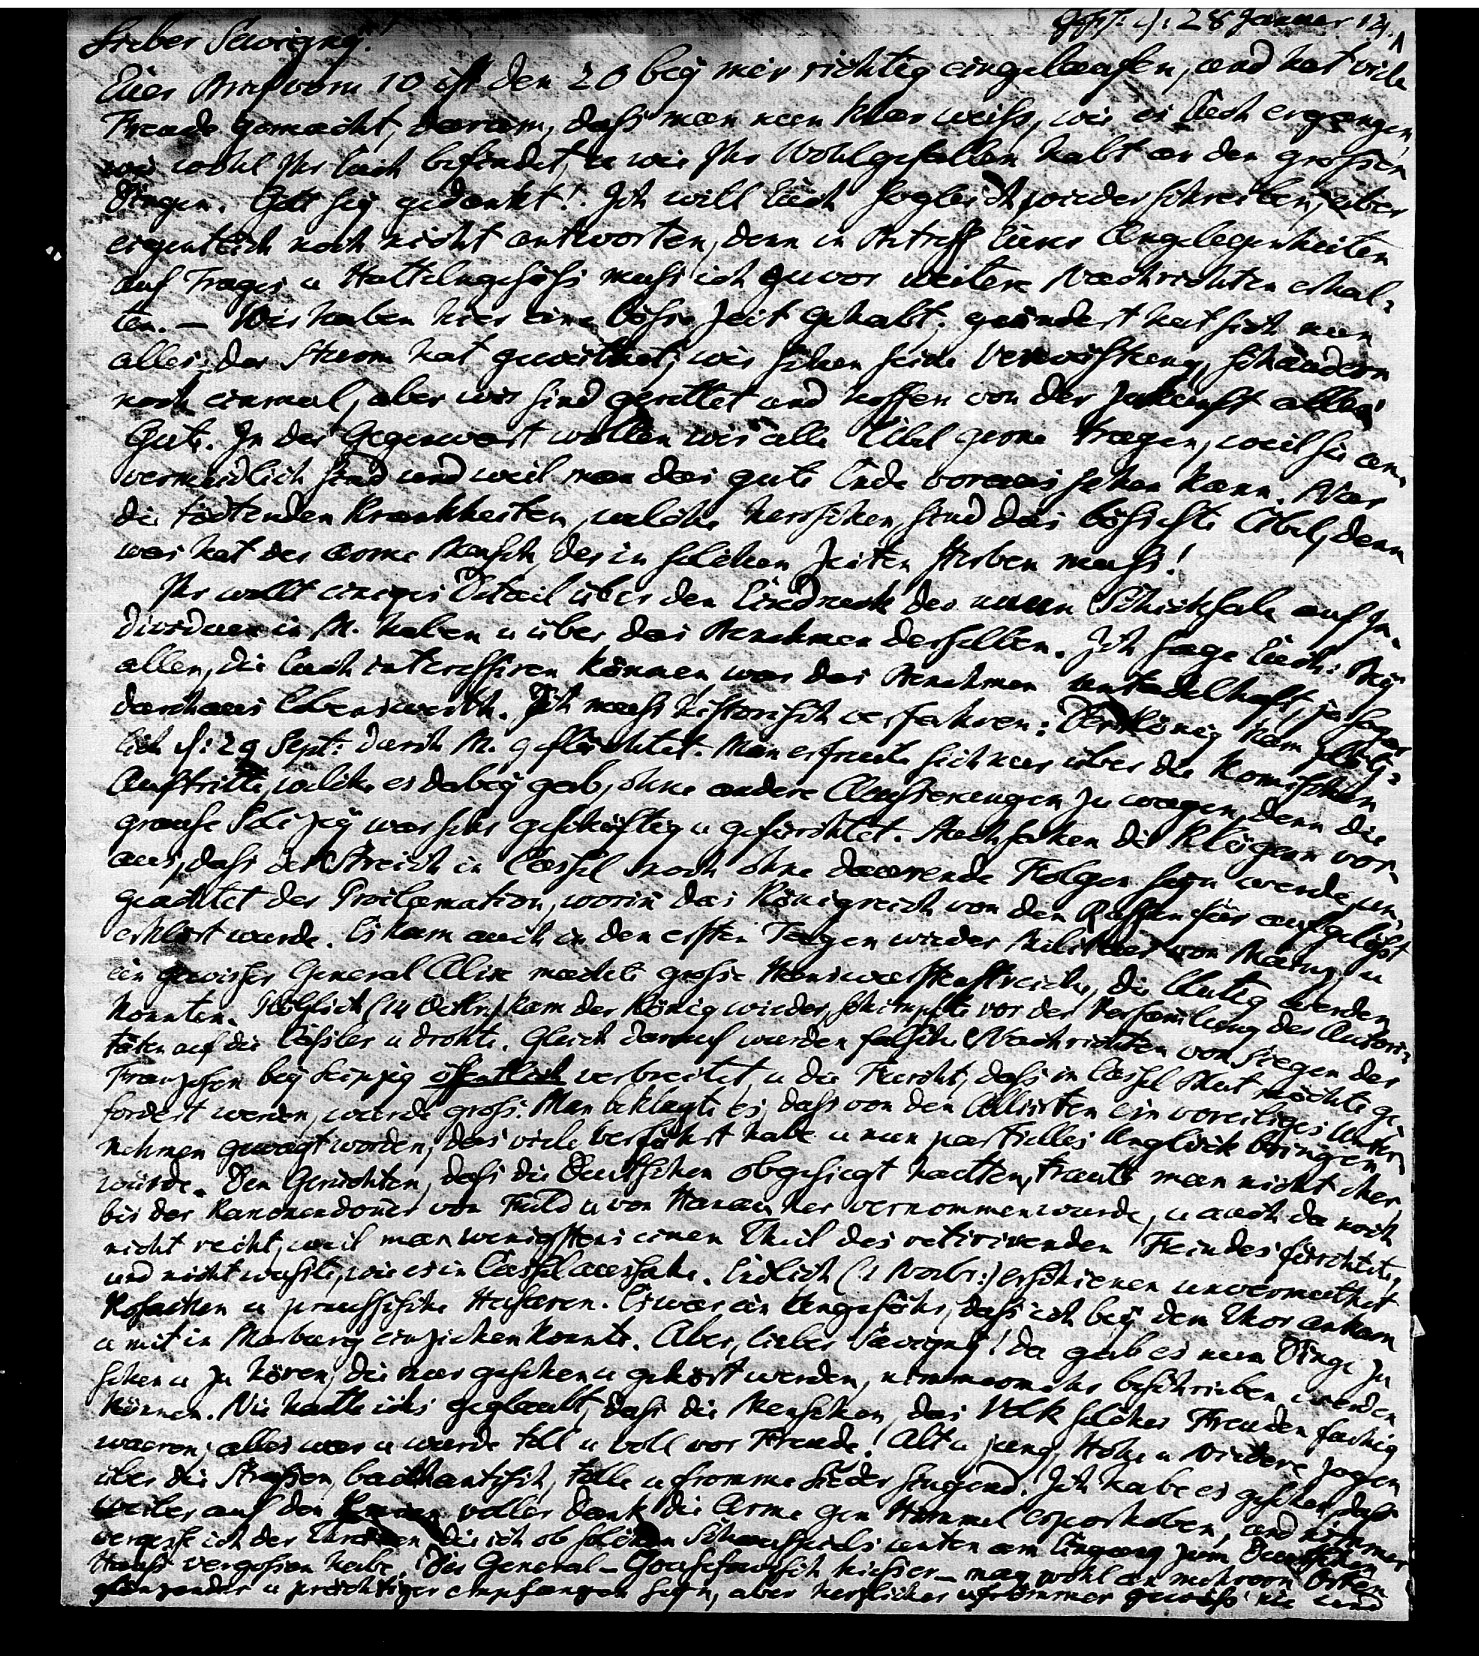 Gssf. d. 28 Januar 14.
Lieber Savigny!
Euer Brief vom 10 ist den 20 bey mir richtig eingelaufen, und hat viele
Freude gemacht, darum, daß man nun klar weiß, wie es Euch ergangen,
wie wohl Ihr Euch befindet, u wie Ihr Wohlgefallen habt an den großen
Dingen. Gott sey gedankt! Ich will Euch sogleich wieder schreiben, aber
eigentlich noch nicht antworten, denn in Betreff Eurer Angelegenheiten
auf Trages u Hettelngesäß muß ich zuvor weitere Nachrichten erhal-
ten. — Wir haben hier eine böse Zeit gehabt; geändert hat sich nun
alles; der Sturm hat gewüthet; wir sehen seine Verwüstung, schaudern
noch einmal, aber wir sind gerettet und hoffen von der Zukunft alles
Gute. In der Gegenwart wollen wir alle Übel gerne tragen, weil sie un-
vermeidlich sind und weil man das gute Ende voraus sehen kann. Nur
die tödtenden Krankheiten, welche herrschen sind das böseste Übel, denn
was hat der arme Mensch, der in solchen Zeiten sterben muß!
Ihr wollt einiges Detail über den Eindruck des neuen Schicksals auf In-
dividuen in M. haben u über das Benehmen derselben. Ich sage Euch: Bey
allen, die Euch interessiren können war das Benehmen untadelhaft, ja sogar
durchaus lobenswerth. Ich muß historisch verfahren: Der König kam plötz-
lich d. 29 Sept: durch M. geflüchtet. Man erfreute sich nur über die komischen
Auftritte, welche es dabey gab, ohne andere Äußerungen zu wagen, denn die
grause Polizey war sehr geschäftig u gefürchtet. Auch sahen die Klügern vor-
aus, daß der Streich in Cassel noch ohne daurende Folgen seyn werde, un-
geachtet der Proclamation, worin das Königreich von den Russen für aufgelöst
erklärt wurde. Es kam auch in den ersten Tagen wieder Militair von Mainz u
ein gewisser General Alix machte große Hanswurstenstreiche, die blutig werden
konnten. Plötzlich (14 Octbr.) kam der König wieder, schimpfte vor der Versammlung der Autori-
täten auf die Cässler u drohte. Gleich darauf wurden falsche Nachrichten von Siegen der
Franzosen bey Leipzig öffentlich verbreitet, u die Furcht, daß in Cassel Blut möchte ge-
fordert werden, wurde groß. Man beklagte es, daß von den Alliirten ein voreiliges Unter-
nehmen gewagt worden, das viele verführt habe u nun partielles Unglück bringen
würde. Den Gerüchten, daß die Deutschen obgesiegt hatten, traute man nicht eher,
bis der Kanonendoner von Fuld u von Hanau her vernommen wurde, u auch da noch
nicht recht, weil man wenigstens einen Theil des retirirenden Feindes fürchtete,
und nicht wußte, wie es in Cassel aussahe. Endlich (2 Novbr:) erschienen unvermuthet
Kosacken u preussische Husaren. Es war ein Ungefähr, daß ich bey dem Thor ankam
u mit in Marburg einziehen konnte. Aber, lieber Savigny! da gab es nun Dinge zu
sehen u zu hören, die nur gesehen u gehört werden, nimmermehr beschrieben werden
können. Nie hatte ichs geglaubt, daß die Menschen, das Volk solcher Freuden faehig
waeren; alles war u wurde toll u voll vor Freude. Alt u jung, Hohe u Niedere zogen
über die Straßen, bacchantisch, tolle u fromme Lieder singend. Ich habe es gesehen, daß
Weiber auf den Knieen voller Dank die Arme gen Himmel emporhoben, und nimmer
vergesse ich der Thränen, die ich ob solchen Schauspiels unten am Eingang zum Deutschen
Hause vergossen habe. Der General – hieser – mag wohl an mehrern Orten
glänzender u prächtiger empfangen seyn, aber herzlicher u frömmer gewiß nie und